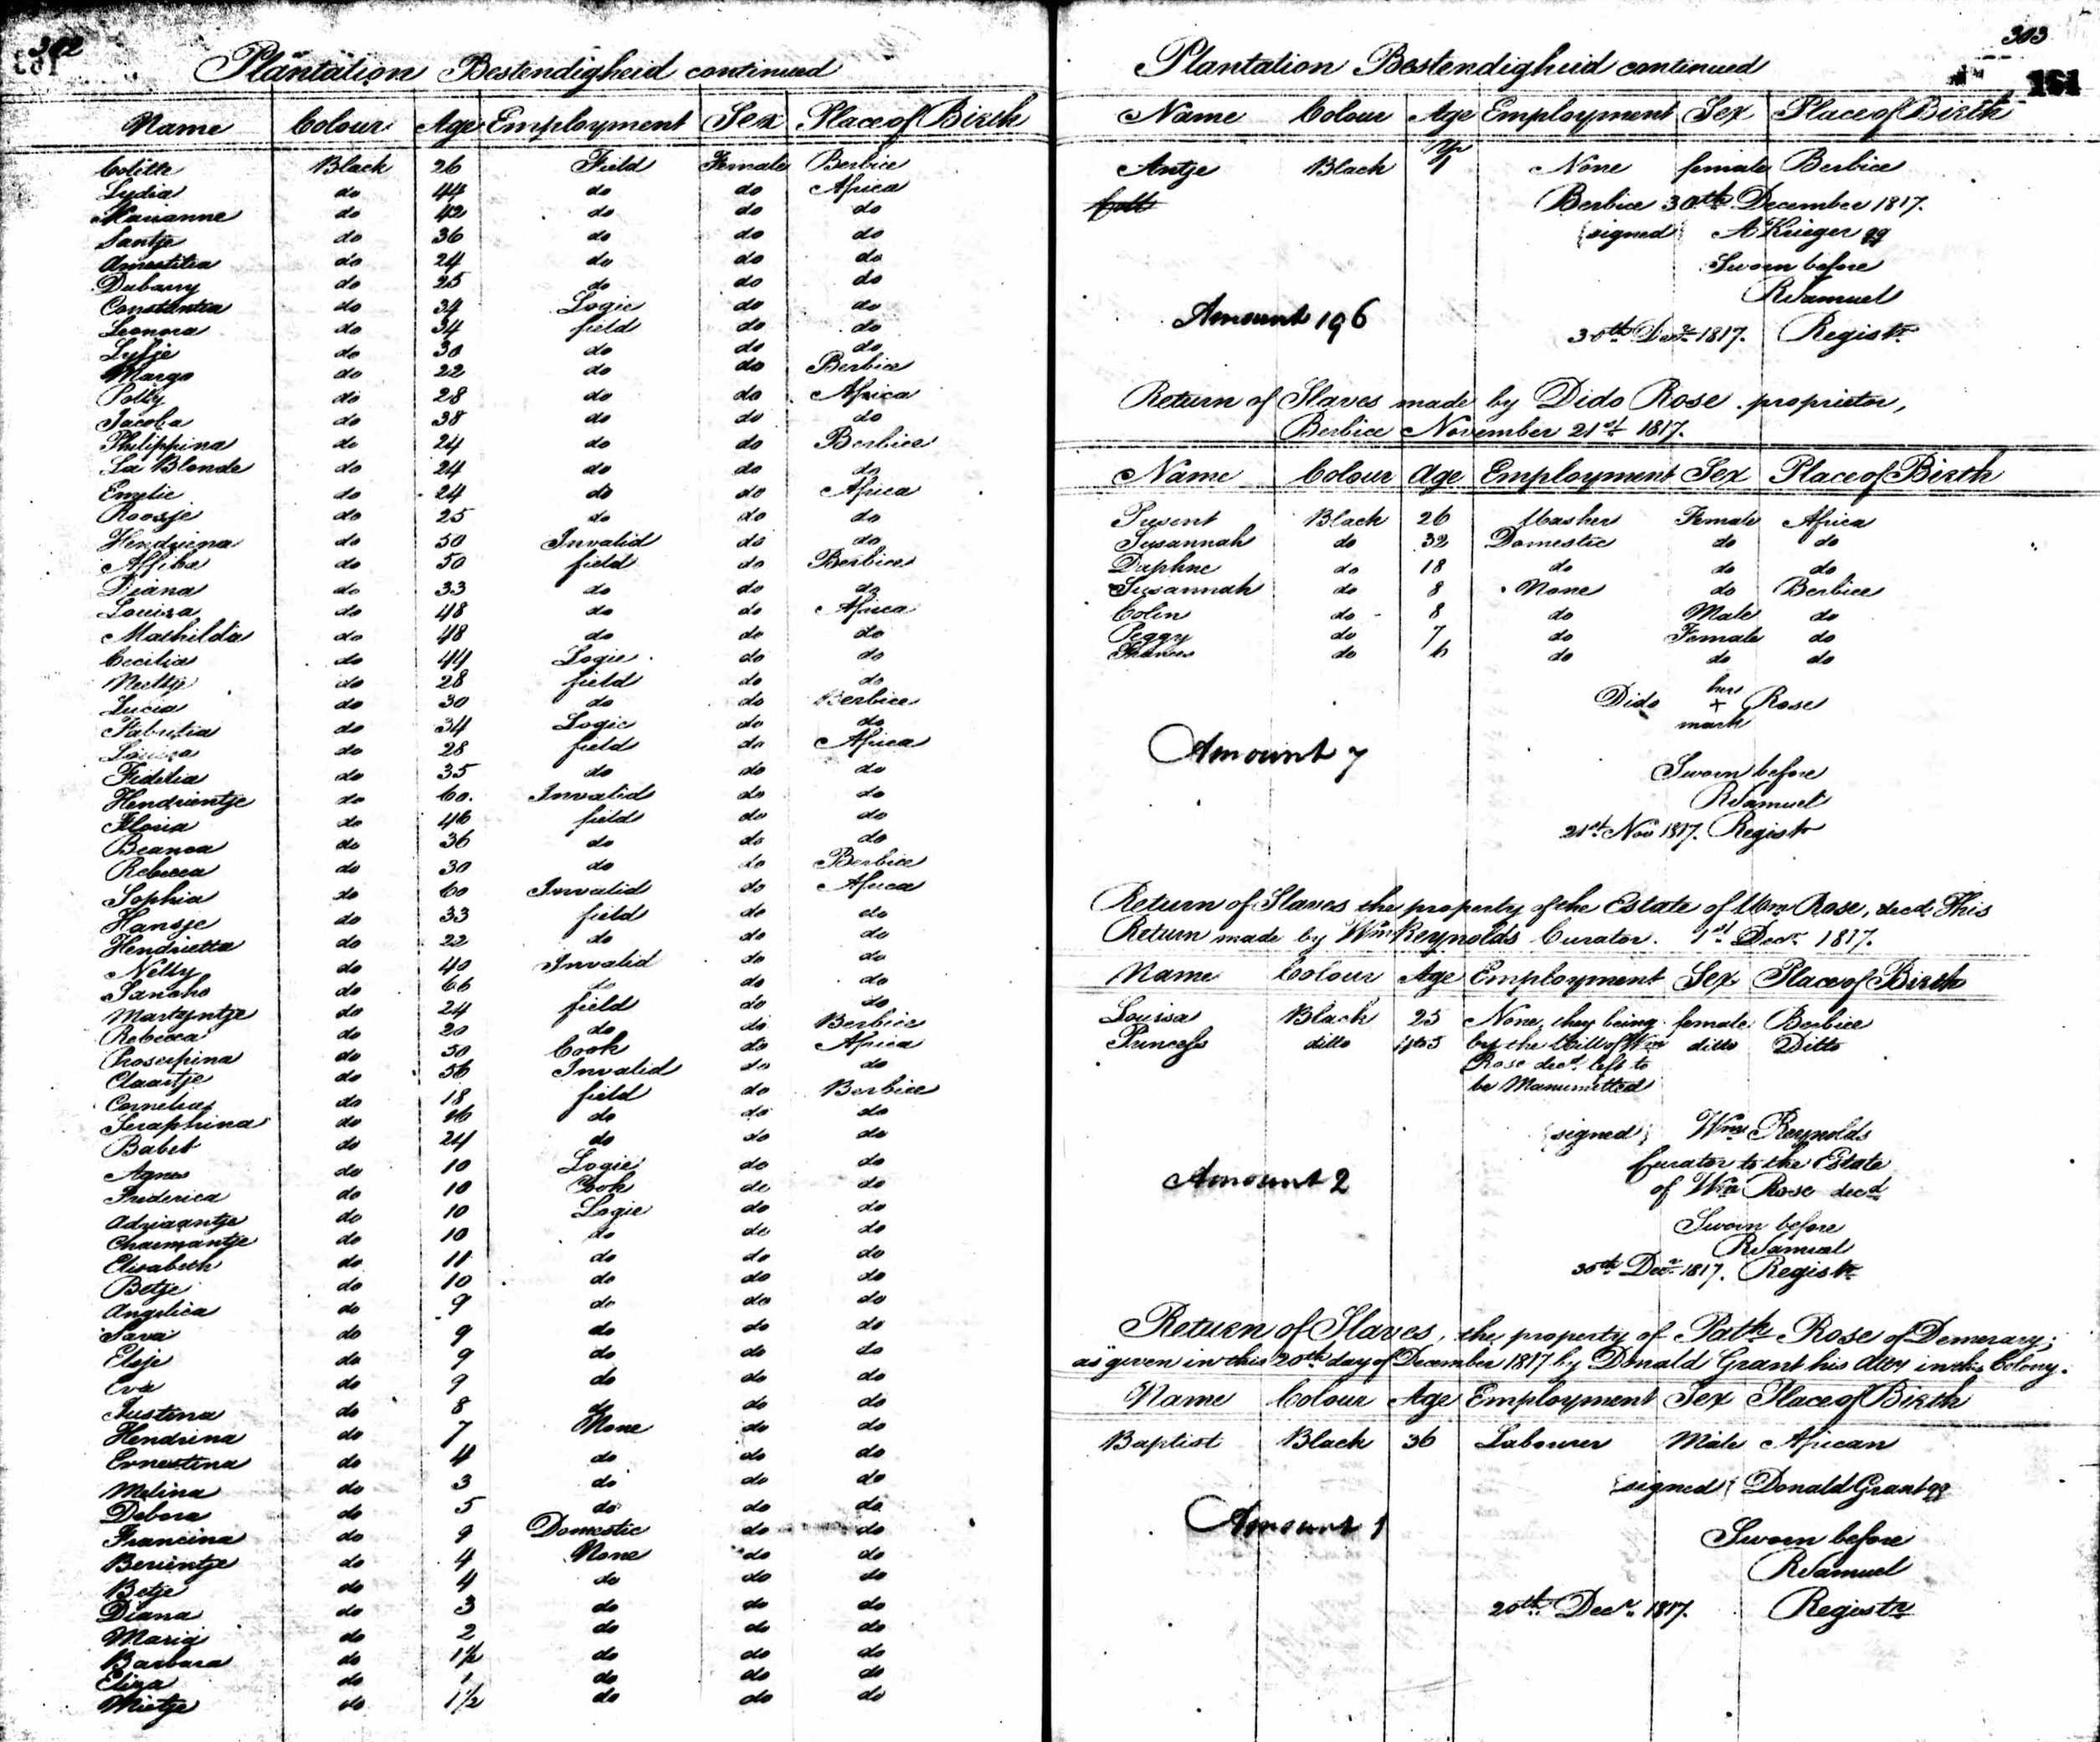 302
Plantation Bestendigheid continued
Name Colour Age Employment Sex Place of Birth
Colitte Black 26 Field Female Berbice
Lydia do 44 do do Africa
Marianne do 42 do do do
Santje do 36 do do do
do 24 do do do
Dubarry do 25 do do do
Constantia do 34 Logie do do
Leonora do 34 field do do
Lyfje do 30 do do do
Margo do 22 do do Berbice
Polly do 28 do do Africa
Jacoba do 38 do do do
Philippina do 24 do do Berbice
La Blonde do 24 do do do
Emelie do 24 do do Africa
Roosje do 25 do do do
Hendrina do 50 Invalid do do
Affiba do 50 field do Berbice
Diana do 33 do do do
Louisa do 48 do do Africa
Mathilda do 48 do do do
Cecilia do 44 Logie do do
Neeltje do 28 field do do
Lucia do 30 do do Berbice
do 34 Logie do do
Louisa do 28 field do Africa
Fidelia do 35 do do do
Hendrientje do 60. Invalid do do
Floria do 46 field do do
Beanca do 36 do do do
Rebecca do 30 do do Berbice
Sophia do 60 Invalid do Africa
Hansje do 33 field do do
Hendrietta do 22 do do do
Nelly do 40 Invalid do do
Sancho do 66 do do do
Martyntje do 24 field do do
Rebecca do 20 do do Berbice
Proserpina do 50 Cook do Africa
Claartje do 56 Invalid do do
Cornelias do 18 field do Berbice
Seraphina do 16 do do do
Babet do 24 do do do
Agnes do 10 Logie do do
Frederica do 10 Cook do do
Adriaantje do 10 Logie do do
Charmantje do 10 do do do
Elisabeth do 11 do do do
Betje do 10 do do do
Angelica do 9 do do do
Sara do 9 do do do
Elsje do 9 do do do
Eva do 9 do do do
Justina do 8 do do do
Hendrina do 7 None do do
Ernestina do 4 do do do
Melina do 3 do do do
Debora do 5 do do do
Francina do 9 Domestic do do
Berientje do 4 None do do
Betje do 4 do do do
Diana do 3 do do do
Maria do 2 do do do
Barbara do 1½ do do do
Eliza do 1 do do do
Mietje do 1½ do do do
303
161
Plantation Bestendigheid continued
Name Colour Age Employment Sex Place of Birth
Antje Black None female Berbice
Berbice 30th December 1817.
{signed} A Krieger qq
Sworn before
R Samuel
Amount 196
30th Decr 1817. Registr
Return of Slaves made by Dido Rose proprietor,
Berbice November 21st 1817.
Name Colour Age Employment Sex Place of Birth
Present Black 26 Washer Female Africa
Susannah do 32 Domestic do do
Daphne do 18 do do do
Susannah do 8 None do Berbice
Colin do 8 do Male do
Peggy do 7 do Female do
Frances do 6 do do do
her
Dido + Rose
mark
Amount 7
Sworn before
R Samuel
21st Nov 1817. Registr
Return of Slaves the property of the Estate of Wm Rose, decd. This
Return made by Wm Reynolds Curator. 1st Decr 1817.
Name Colour Age Employment Sex Place of Birth
Louisa Black 25 None, they being female Berbice
Princess ditto 4 to 5 by the Will of Wm ditto Ditto
Rose decd left to
be Manumitted
{signed} Wm Reynolds
Curator to the Estate
Amount 2
of Wm Rose decd
Sworn before
R Samuel
30th Decr 1817. Registr
Return of Slaves, the property of Patk Rose of Demerary;
as given in this 20th day of December 1817 by Donald Grant his Atty in this Colony.
Name Colour Age Employment Sex Place of Birth
Baptist Black 36 Labourer Male African
{signed} Donald Grant qq
Amount 1
Sworn before
R Samuel
20th Decr 1817. Registr